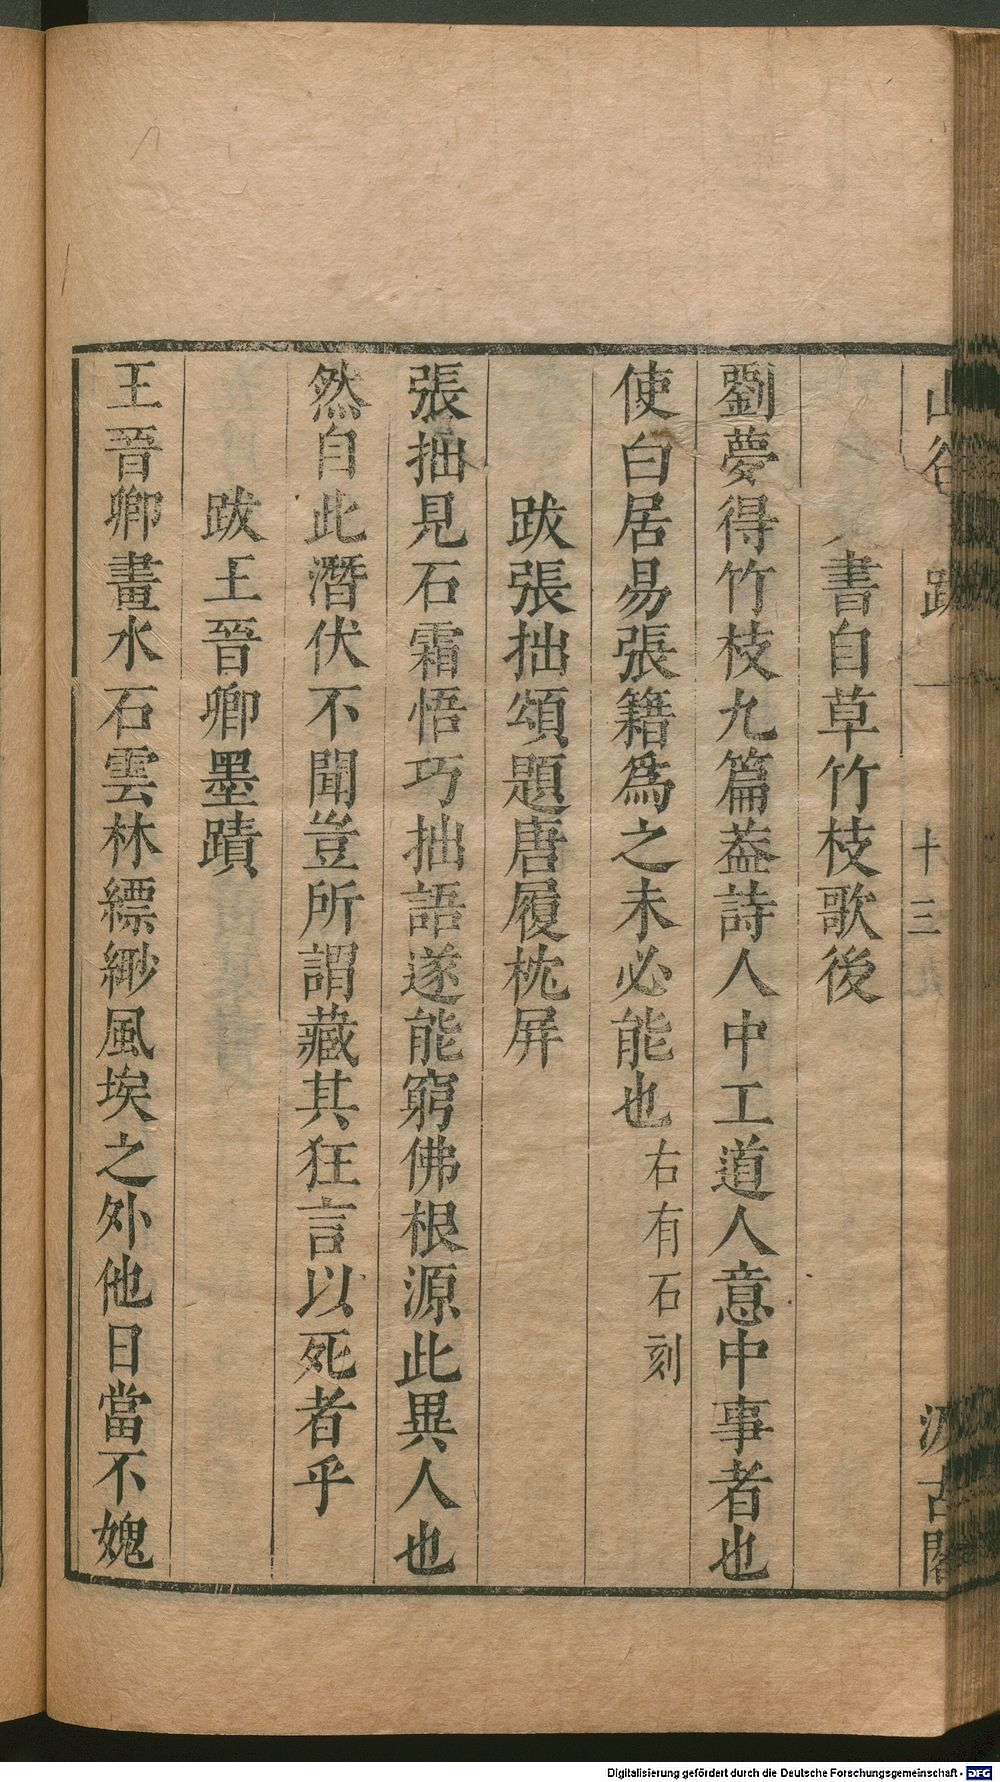 書自草竹枝歌後
劉夢得竹枝九篇葢詩人中工道人意中事者也
使白居易張籍為之未必能也右有石刻
跋張拙頌題唐履枕屏
張拙見石霜悟巧拙語遂能窮佛根源此異人也
然自此潛伏不聞豈所謂藏其狂言以死者乎
跋王晉卿墨蹟
王晉卿畫水石雲林縹緲風埃之外他日當不媿
山谷 跋 一 十三 汲古閣
Digitalisierung gefördert durch die Deutsche Forschungsgemeinschaft - DFG